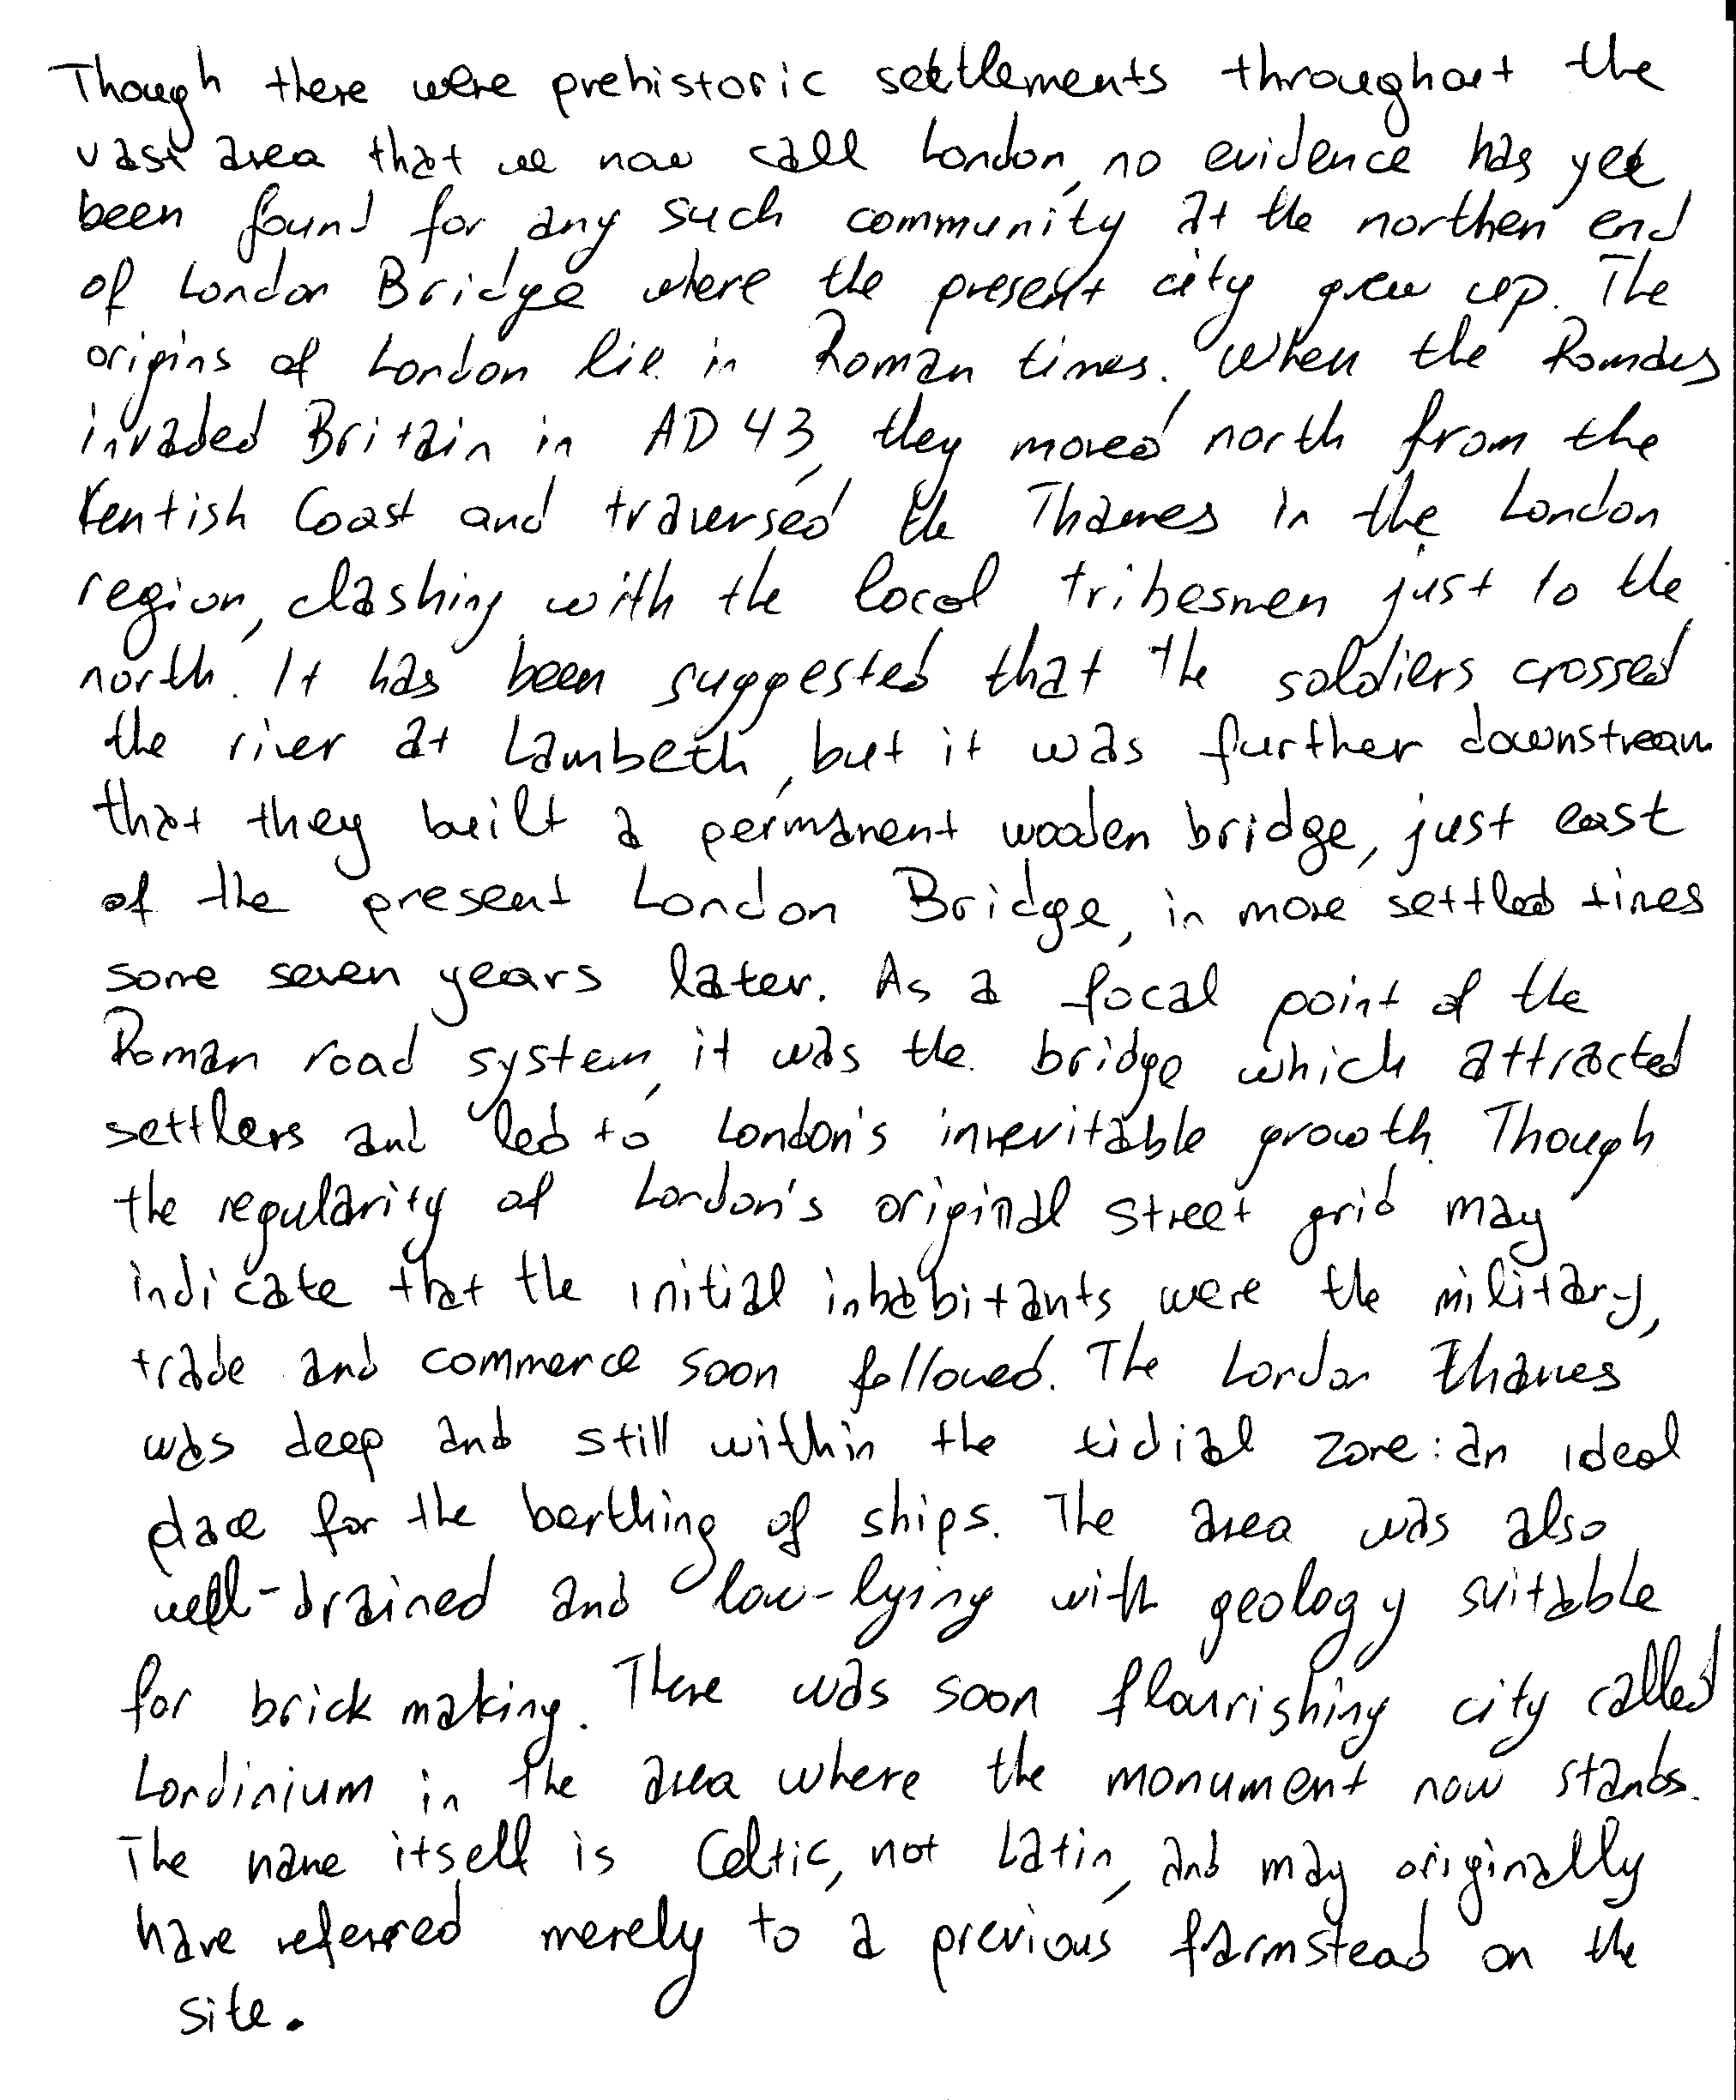 Though there were prehistoric settlements throughout the
vast area that we now call London, no evidence has yet
been found for any such community at the northen end
of London Bridge where the present city grew up. The
origins of London lie in Roman times. When the Romans
invaded Britain in AD 43, they moved north from the
Kentish Coast and traversed the Thames in the London
region, clashing with the local tribesmen just to the
north. It has been suggested that the soldiers crossed
the river at Lambeth, but it was further downstream
that they built a permanent wooden bridge, just east
of the present London Bridge, in more settled times
some seven years later. As a focal point of the
Roman road system, it was the bridge which attracted
settlers and led to London's inevitable growth. Though
the regularity of London's original street grid may
indicate that the initial inhabitants were the military,
trade and commerce soon followed. The London Thames
was deep and still within the tidial zone: an ideal
place for the berthing of ships. The area was also
well-drained and low-lying with geology suitable
for brick making. There was soon flourishing city called
Londinium in the area where the monument now stands.
The name itself is Celtic, not Latin, and may originally
have referred merely to a previous farmstead on the
site.